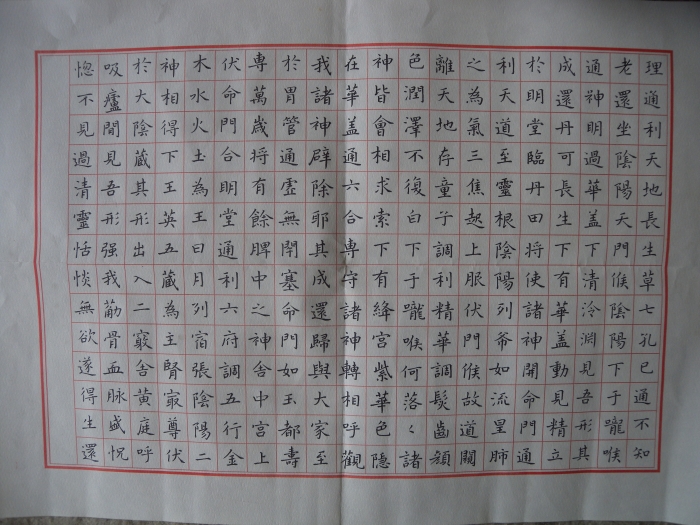 理通利天地長生草七孔已通不知
老還坐陰陽天門候陰陽下于嚨喉
通神明過華盖下清泠淵見吾形其
成還丹可長生下有華盖動見精立
於明堂臨丹田將使諸神開命門通
利天道至靈根陰陽列㸙如流星肺
之為氣三焦起上服伏門候故道闚
離天地存童子調利精華調髮齒顏
色潤澤不復白下于嚨喉何落〻諸
神皆會相求索下有絳宮紫華色隱
在華盖通六合專守諸神轉相呼觀
我諸神辟除邪其成還歸與大家至
於胃管通虛無閇塞命門如玉都壽
專萬歲將有餘脾中之神舎中宮上
伏命門合明堂通利六府調五行金
木水火土為王日月列宿張陰陽二
神相得下王英五藏為主腎㝡尊伏
於大陰藏其形出入二竅舎黃庭呼
吸廬間見吾形强我筋骨血脉盛怳
惚不見過清靈恬惔無欲遂得生還